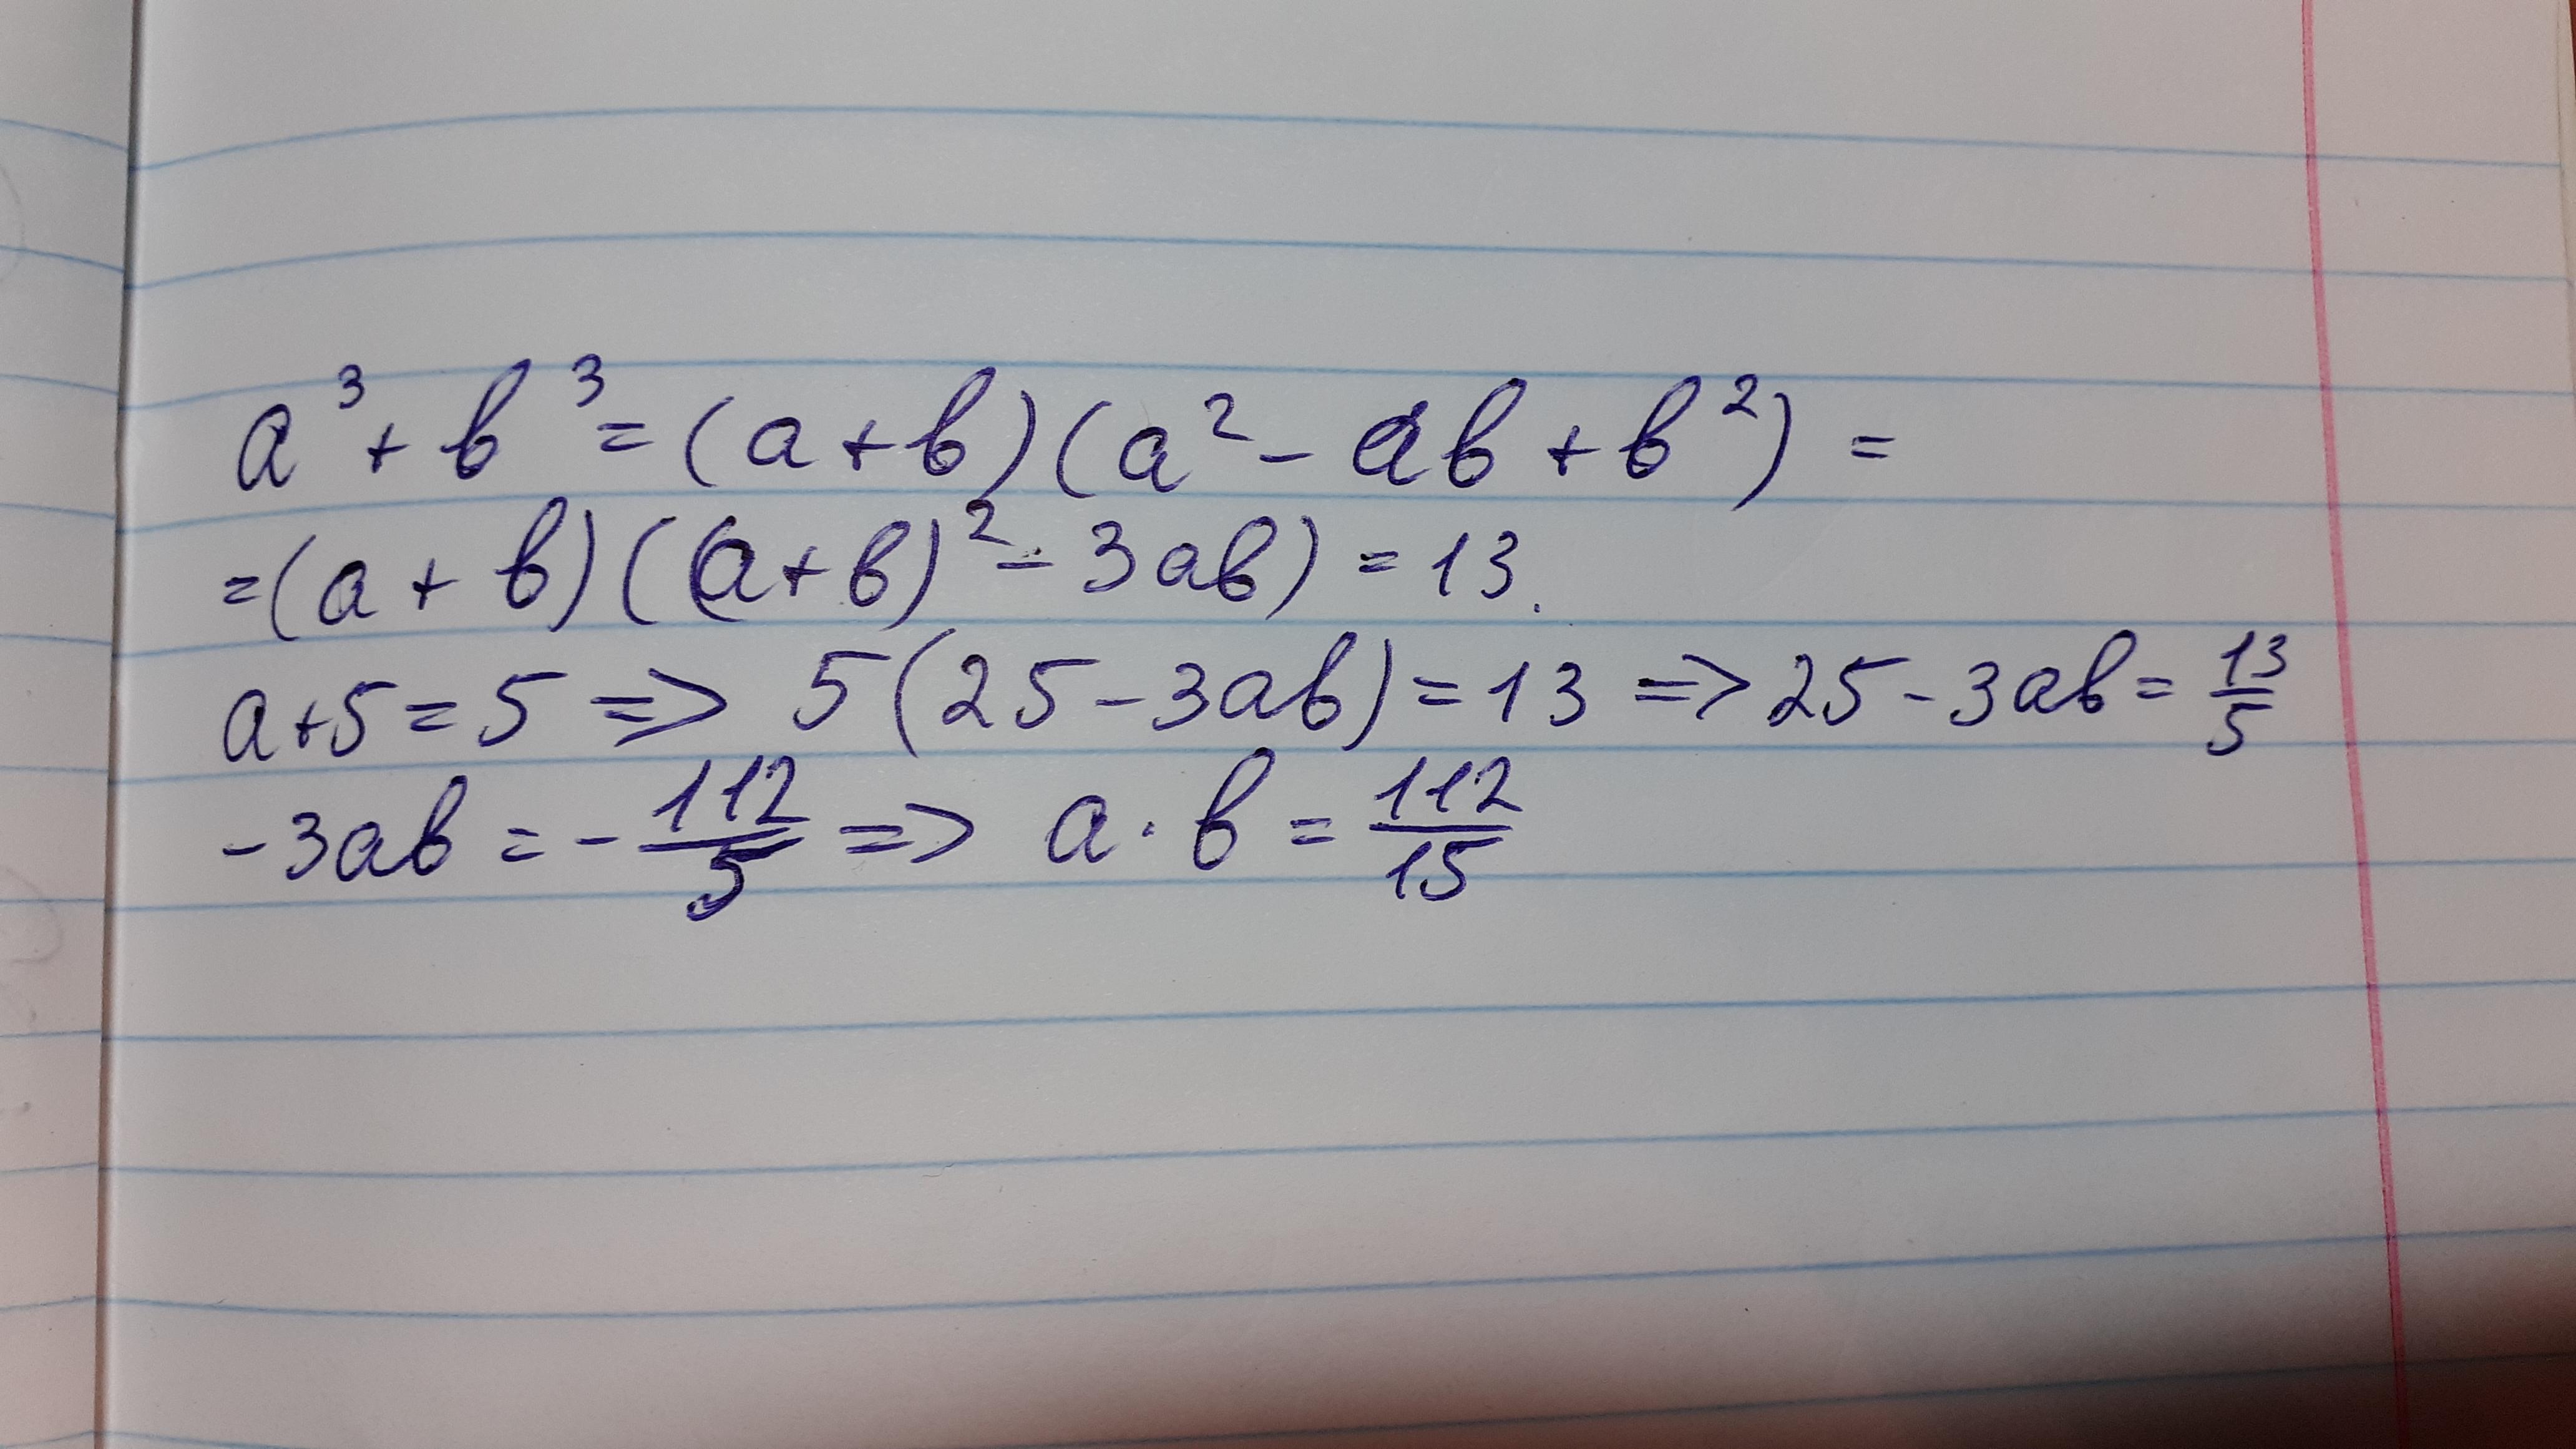 a³ + b³ = (a + b)(a² - ab + b²) =
= (a + b)((a + b)² - 3ab) = 13.
a + 5 = 5 => 5(25 - 3ab) = 13 => 25 - 3ab = 13/5
-3ab = -112/5 => a · b = 112/15